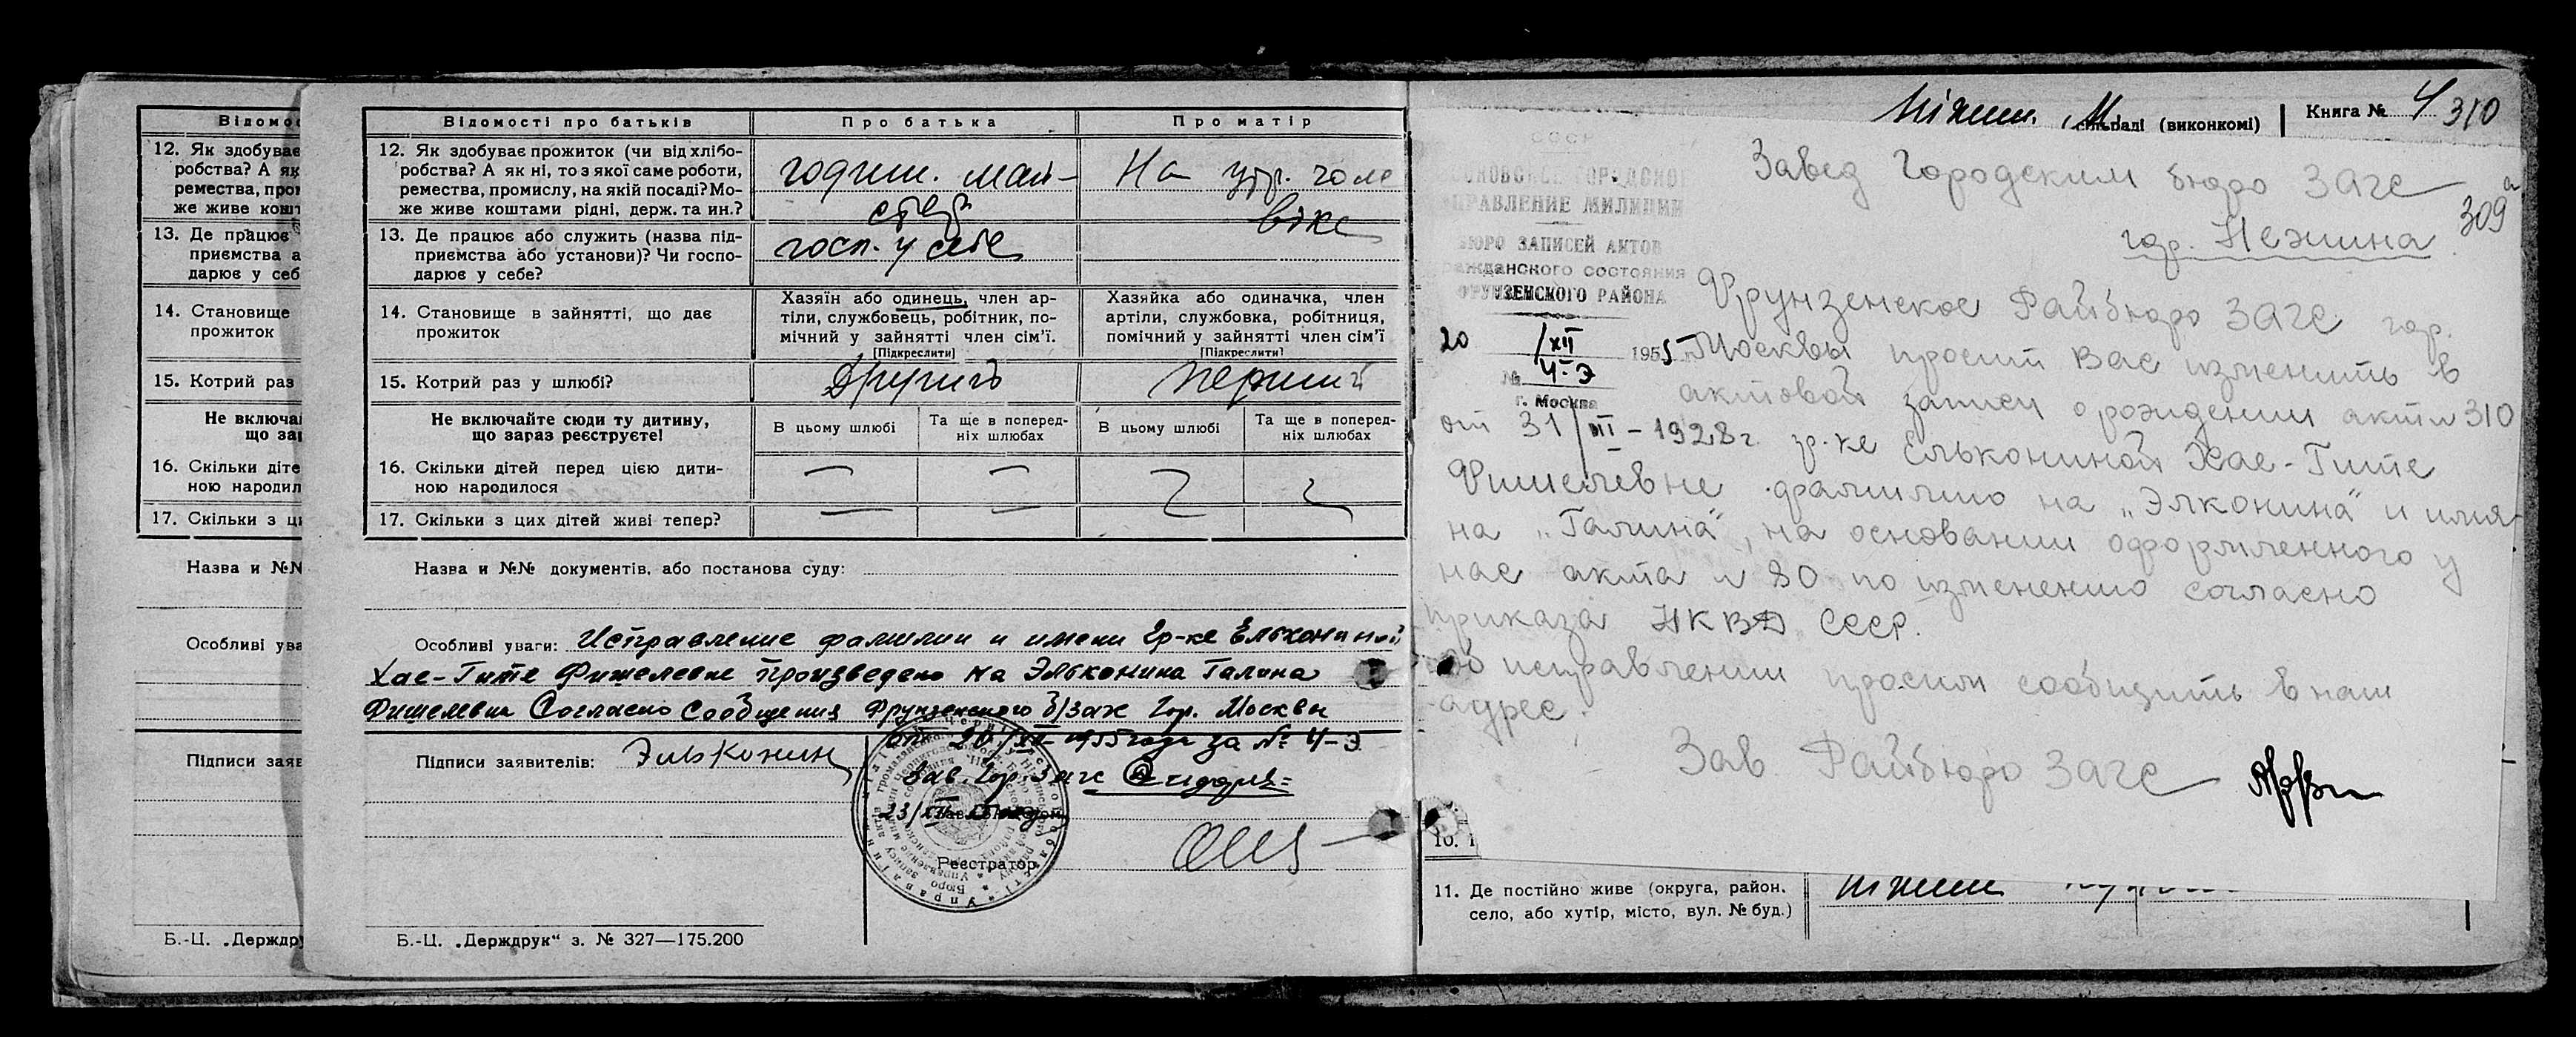 Відомос
12. Як здобуває
робства? А як
ремества, пром
же живе кошт
13. Де працює
приємства а
дарює у себ
14. Становище
прожиток
15. Котрий раз
Не включай
що зар
16. Скільки діте
ною народил
17. Скільки з ци
Назва и №№
Особливі ува
Підписи заяв
Б.-Ц. „Держдру
Відомості про батьків
Про батька
Про матір
12. Як здобуває прожиток (чи від хлібо-
робства? А як ні, то з якої саме роботи,
ремества, промислу, на якій посаді? Мо-
же живе коштами рідні, держ. та ин.?
годин. май-
стер
На утр. чоло
віка
13. Де працює або служить (назва під-
приємства або установи)? Чи госпо-
дарює у себе?
госп. у себе
14. Становище в зайнятті, що дає
прожиток
Хазяїн або одинець, член ар-
тіли, службовець, робітник, по-
мічний у зайнятті член сім'ї.
[Підкреслити]
Хазяйка або одиначка, член
артіли, службовка, робітниця,
помічний у зайнятті член сім'ї
[Підкреслити]
15. Котрий раз у шлюбі?
Другий
Перший
Не включайте сюди ту дитину,
що зараз реєструєте!
В цьому шлюбі
Та ще в поперед-
ніх шлюбах
В цьому шлюбі
Та ще в поперед-
ніх шлюбах
16. Скільки дітей перед цією дити-
ною народилося
17. Скільки з цих дітей живі тепер?
Назва и №№ документів, або постанова суду:
Особливі уваги: Исправление фамилии и имени гр-ке Елькониной
Хае-Гите Фишелевне произведено на Эльконина Галина
Фишелевна Согласно Сообщения Фрунзенского б/загс Гор. Москвы
от 20/XII 1955 года за № 4-Э
Зав. Гор. Загс
23/XII
Підписи заявителів: Элькони
Реєстратор
Б.-Ц. „Держдрук“ з. № 327—175.200
Ніжин. М. сільраді (виконкомі)
Книга № 4 310
309 а
СССР
УПРАВЛЕНИЕ МИЛИЦИИ
БЮРО ЗАПИСЕЙ АКТОВ
гражданского состояния
ФРУНЗЕНСКОГО РАЙОНА
20 /XII 1955
№ 4-Э
г. Москва
Завед Городским бюро загс
гор. Нежина
Фрунзенское Райбюро загс гор.
Москвы просит Вас изменить в
актовой записи о рождении акт № 310
от 31/XII – 1928 г. гр-ке Ельконинoй Хае-Гите
Фишелевне фамилию на „Элконина“ и имя
на „Галина“, на основании оформленного у
нас акта № 80 по изменению согласно
приказа НКВД СССР.
Об исправлении просим сообщить в наш
адрес.
Зав Райбюро загс
10.
11. Де постійно живе (округа, район.
село, або хутір, місто, вул. № буд.)
Ніжин